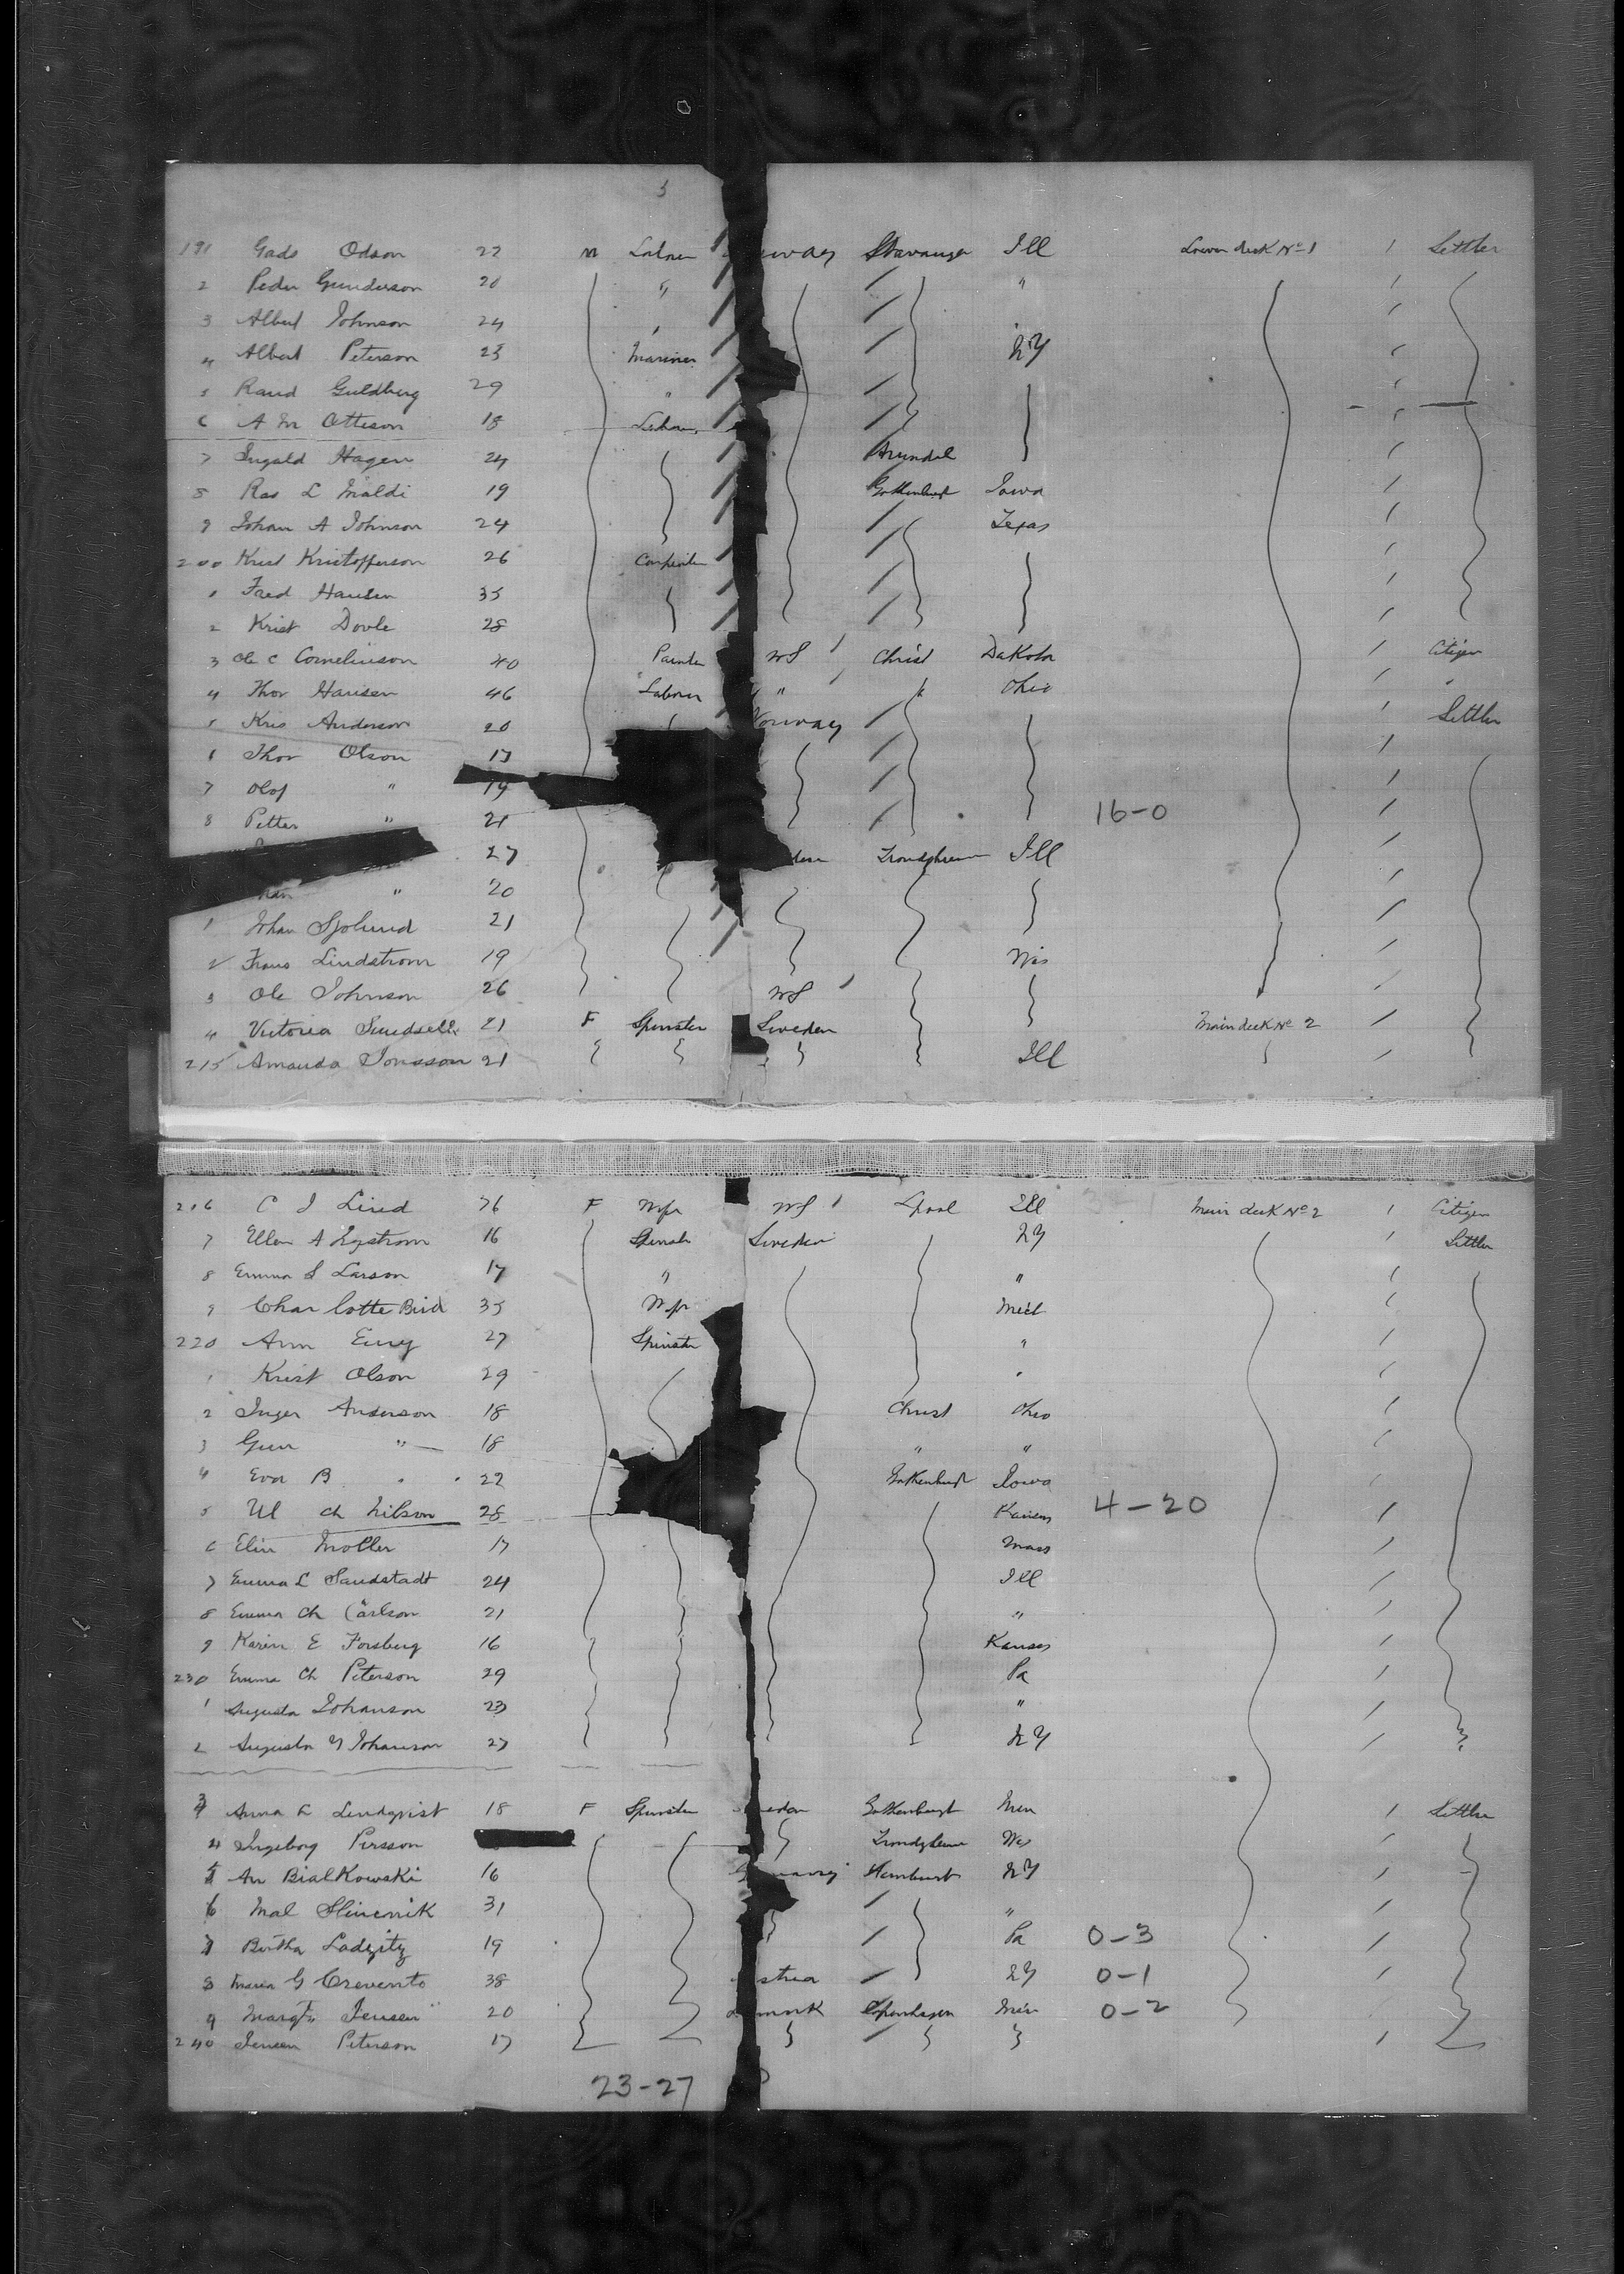 3
191 Gads Odson 22 M Labner way Stavanger Ill Lower deck No 1 1 Settler
2 Peder Gunderson 20 " " /
3 Albert Johnson 24 " /
4 Albert Peterson 25 Mariner NY /
5 Guldberg 29 " /
6 A M Otteson 18 /
7 Hagen 24 Arundal /
8 Ras L 19 Gothenburg Iowa /
9 Johan A Johnson 24 Texas /
200 Krist Kristofferson 26 Carpenter /
1 Fred Hansen 35 /
2 Krist Dovle 28 /
3 Ole C Cornelinson 40 Painter WS / Christ Dakota / Citizen
4 Thor Hansen 46 Laborer " / Ohio / "
5 Kris Anderson 20 Norway / Settler
6 Thor Olson 17 /
7 Olof " 19 /
8 Petter " 21 16-0 /
27 Trondghiem Ill /
" 20 /
1 Johan Sjolund 21 /
2 Frans Lindstrom 19 Wis /
3 Ole Johnson 26 WS / /
4 Victoria 21 F Spinster Sweden Main deck No 2 /
215 Amanda Jonsson 21 Ill /
216 C J Lind 76 F Wfe WS / Lpool Ill Main deck No 2 1 Citizen
7 Ellen A 16 Spinster Sweden NY / Settler
8 Emma S Larson 17 " " /
9 Charlotte Bird 35 Wfe Mich /
220 Ann 27 Spinster " /
1 Krist Olson 29 " /
2 Inger Anderson 18 Christ Ohio /
3 Gun " 18 " " /
4 Eva B " 22 Gothenburg Iowa
5 Ul Ch Nilson 28 Kansas 4-20 /
6 Elin Moller 17 Mass /
7 Emma L Sandstadt 24 Ill /
8 Emma Ch Carlson 21 " /
9 Karin E Forsberg 16 Kansas /
230 Emma Ch Peterson 29 Pa /
1 Augusta Johanson 23 " /
2 Augusta Y Johanson 27 NY /
3 Anna L Lindqvist 18 F Spinster eden Gothenburg Min / Settler
4 Ingeborg Persson Trondghiem Wis /
5 An Bialkowski 16 Hamburg NY /
6 Mal 31 " /
7 Bertha 19 Pa 0-3 /
8 Maria G Crevento 38 stria NY 0-1 /
9 Jensen 20 Copenhagen Min 0-2
240 Jensen Peterson 17 /
23-27